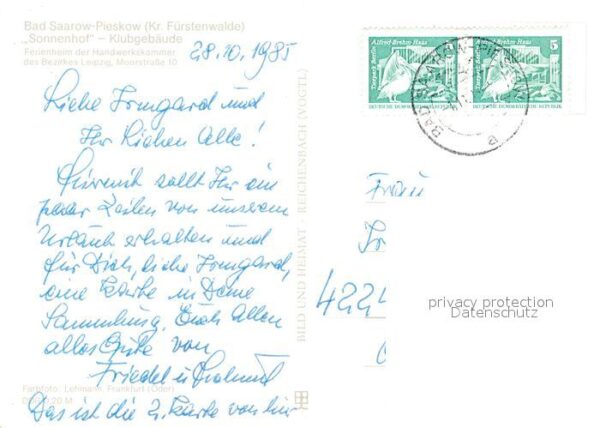 Bad Saarow-Pieskow (Kr. Fürstenwalde)
„Sonnenhof“ – Klubgebäude
Ferienheim der Handwerkskammer
des Bezirkes Leipzig, Moorstraße 10
28.10.1985
Liebe Irmgard und
Ihr Lieben Alle!
Hiermit sollt Ihr ein
paar Zeilen von unserem
Urlaub erhalten und
für Dich, liebe Irmgard,
eine Karte in Deine
Sammlung. Euch Allen
alles Gute von
Friedel u. Helmut
Das ist die 2. Karte von hier
Farbfoto: Lehmann, Frankfurt (Oder)
0,20 M
BILD UND HEIMAT REICHENBACH (VOGTL)
Tierpark Berlin
Alfred-Brehm-Haus
5
DEUTSCHE DEMOKRATISCHE REPUBLIK
Tierpark Berlin
Alfred-Brehm-Haus
5
DEUTSCHE DEMOKRATISCHE REPUBLIK
BAD SAAROW-PIESKOW
e
Frau
Ir
422
privacy protection
Datenschutz